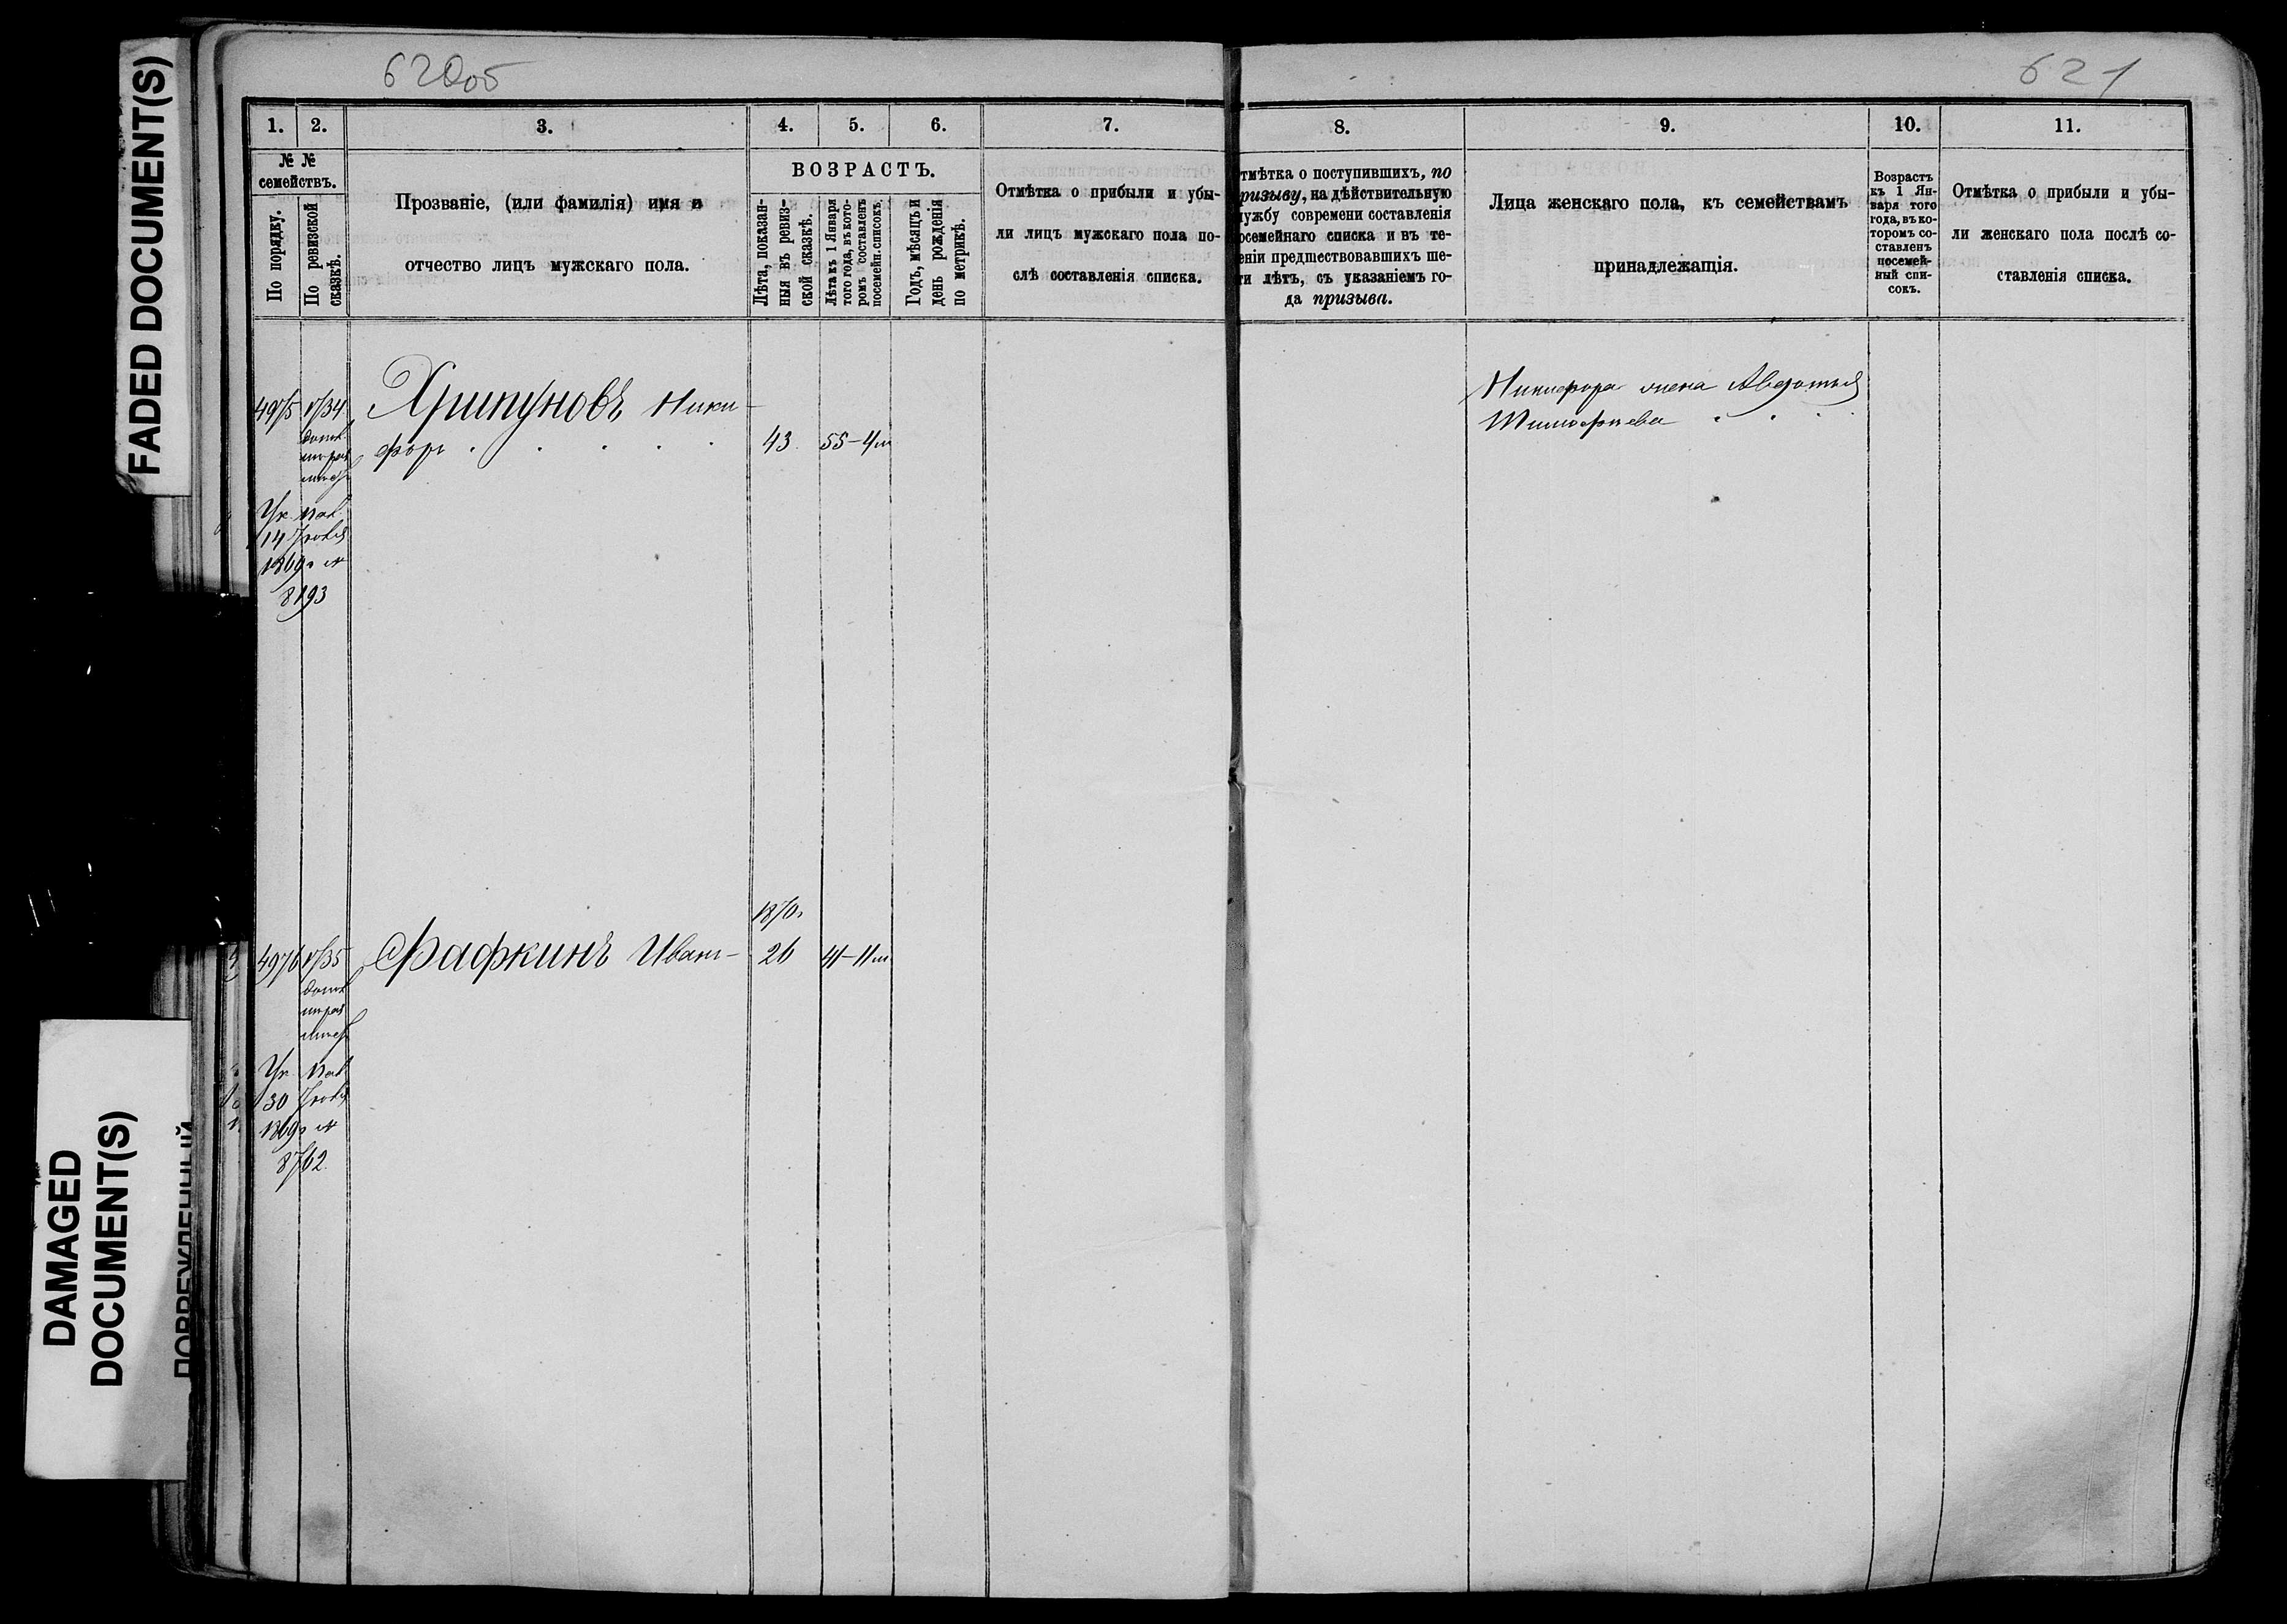 FADED DOCUMENT(S)
DAMAGED
DOCUMENT(S)
620об
621
1.
2.
3.
4.
5.
6.
7.
8.
9.
10.
11.
№ №
семействъ.
По порядку.
По ревизской
сказкѣ.
Прозваніе, (или фамилія) имя и
отчество лицъ мужскаго пола.
ВОЗРАСТЪ.
Лѣта, показан-
ныя въ ревиз-
ской сказкѣ.
Лѣта къ 1 Января
того года, въ кото-
ромъ составленъ
посемейн. списокъ
Годъ, мѣсяцъ и
день рожденія
по метрикѣ.
Отмѣтка о прибыли и убы-
ли лицъ мужскаго пола по-
слѣ составленія списка.
тмѣтка о поступившихъ, по
ризыву, на дѣйствительную
ужбу современи составленія
осемейнаго списка и въ те-
еніи предшествовавшихъ ше-
ти лѣтъ, съ указаніемъ го-
да призыва.
Лица женскаго пола, къ семействамъ
принадлежащія.
Возрастъ
къ 1 Ян-
варя того
года, въ ко-
торомъ со-
ставленъ
посемей-
ный спи-
сокъ.
Отмѣтка о прибыли и убы-
ли женскаго пола послѣ со-
ставленія списка.
4975 1734 Хрипуновъ Ники-
форъ 43 55-4м
Никифора жена Авдотья
Тимофѣева
14
1869
8193
1870
4976 1735 Фафкинъ Иванъ 26 41-11м
30
1869
8762